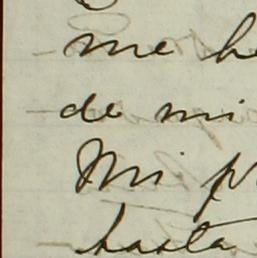 me he
de mi
Mi
hasta